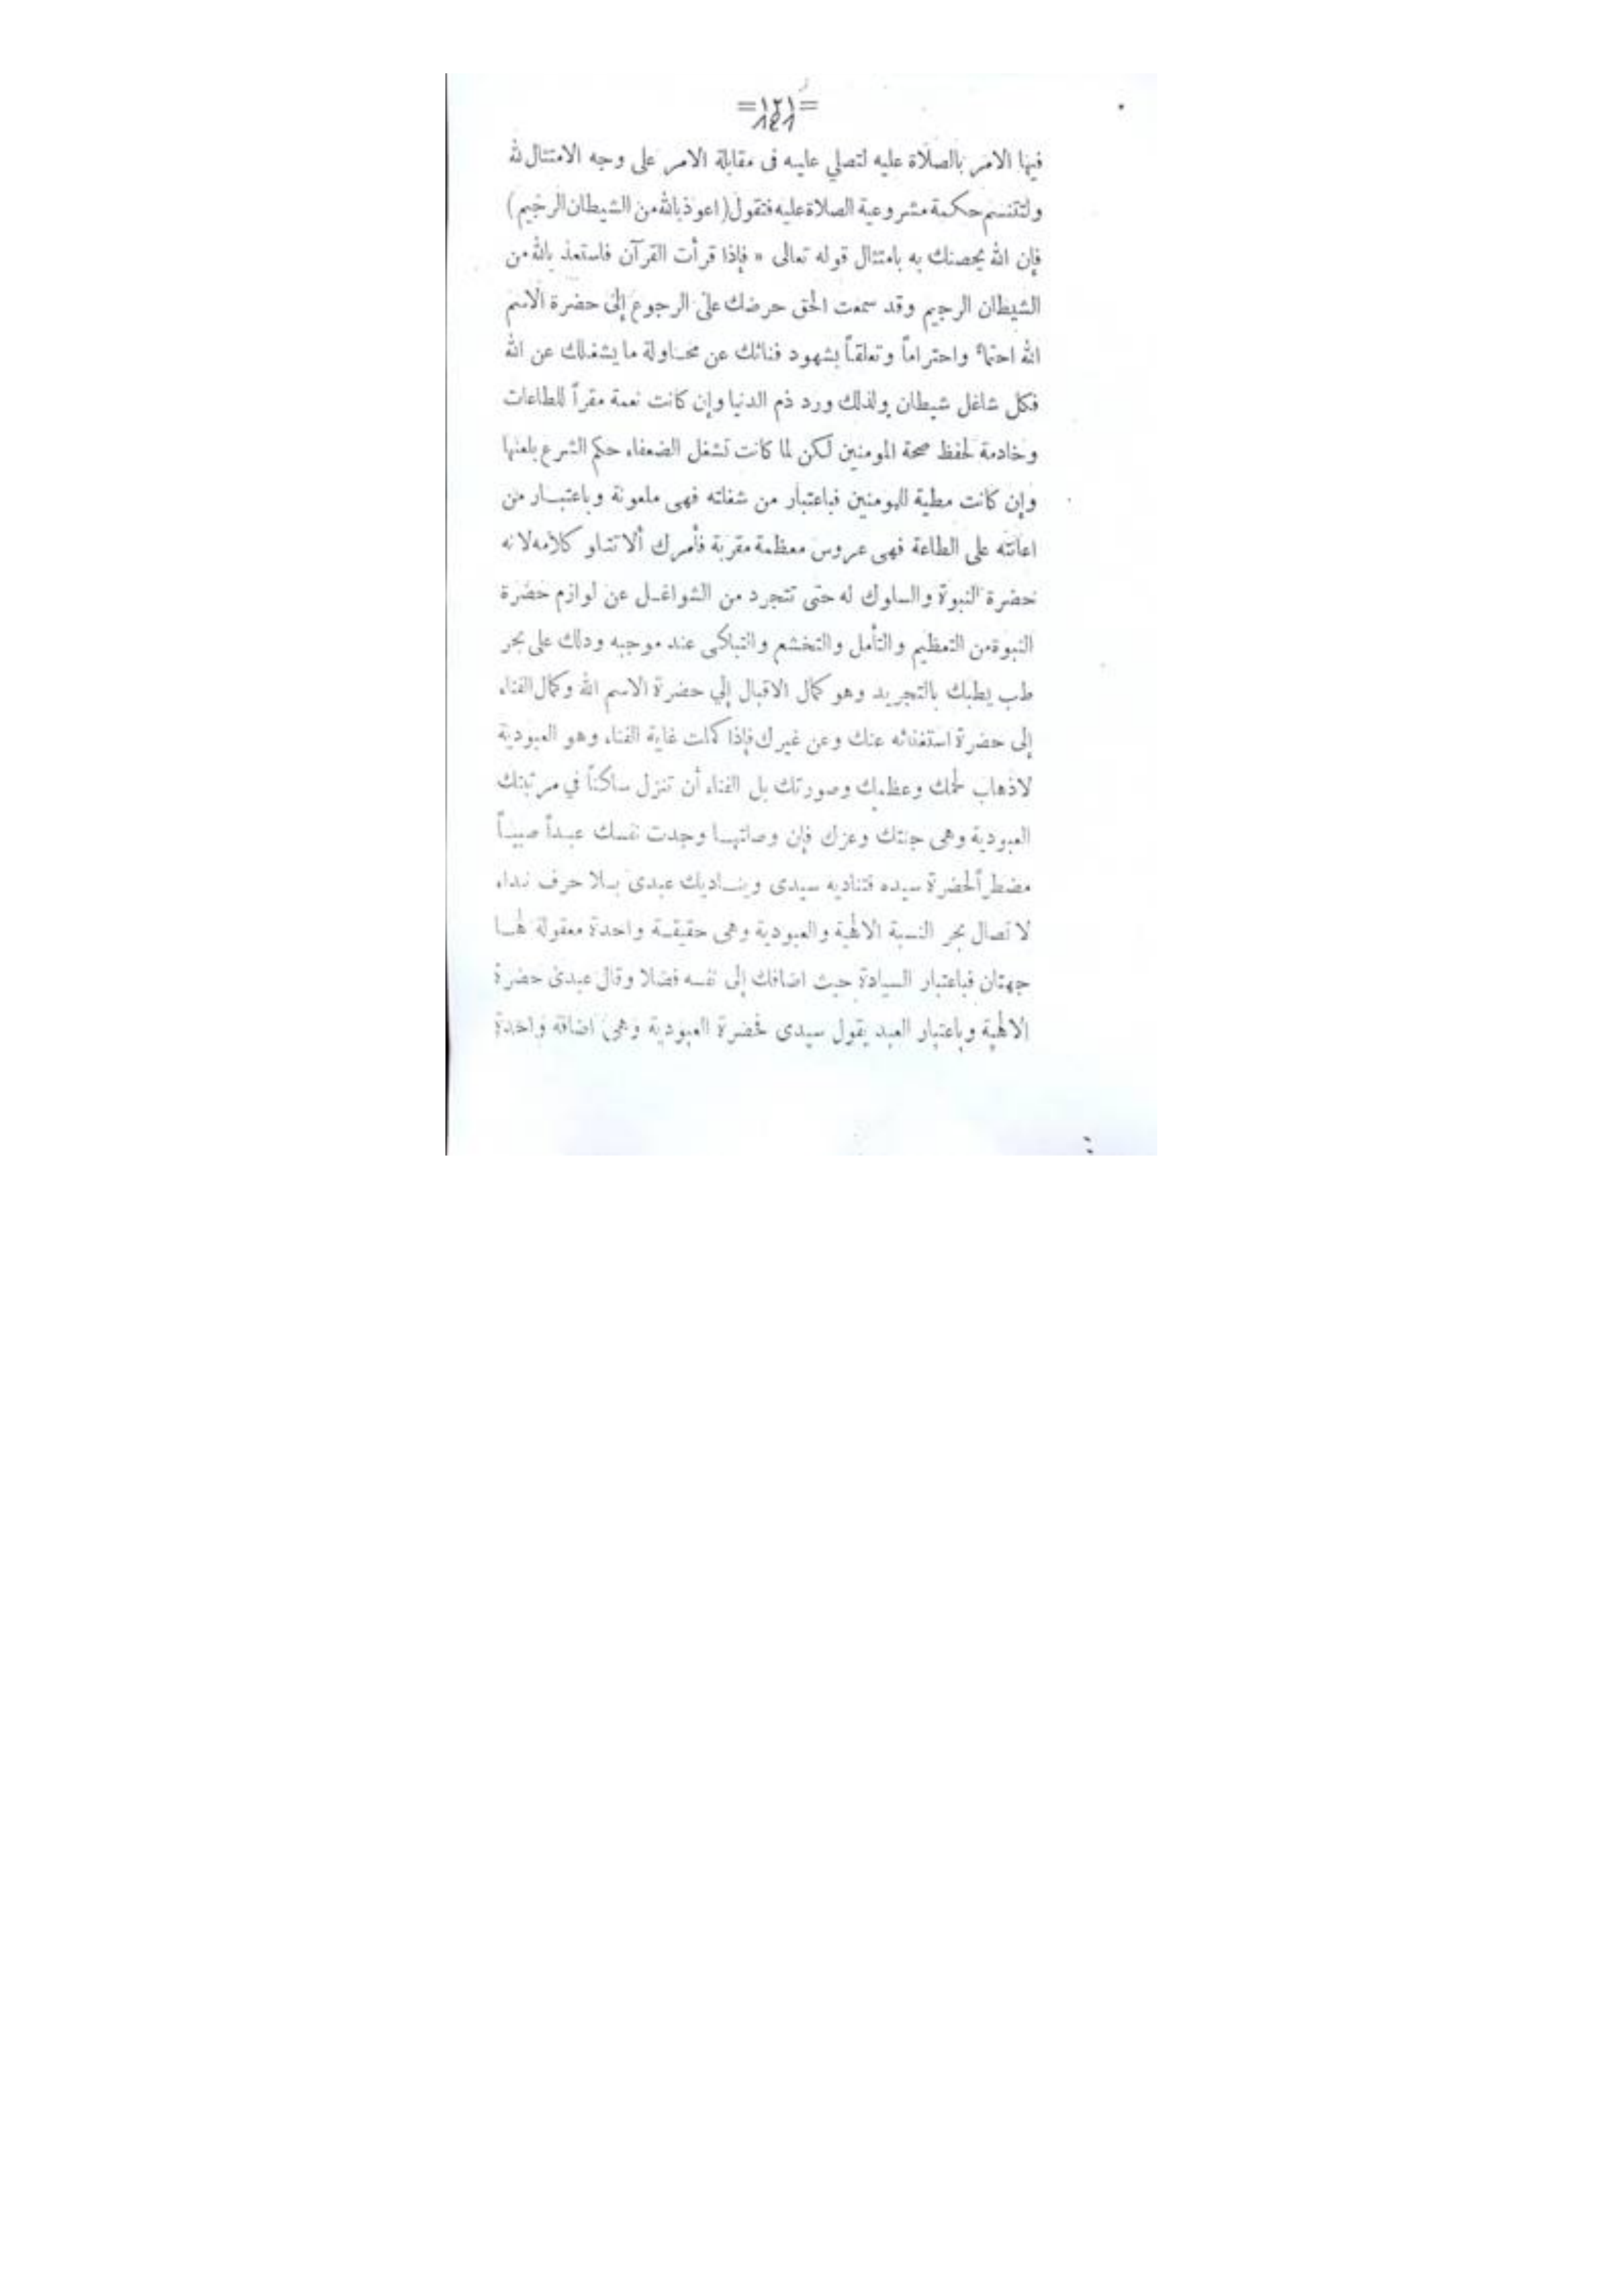 =١٢١=
121
فيها الامر بالصلاة عليه لتصلي عليه فى مقابلة الامر على وجه الامتثال لله
ولتتنسم حكمة مشروعية الصلاة عليه فتقول (اعوذ بالله من الشيطان الرجيم)
فإن الله يحصنك به بامتثال قوله تعالى « فإذا قرأت القرآن فاستعذ بالله من
الشيطان الرجيم وقد سمعت الحق حرضك على الرجوع إلى حضرة الاسم
الله احتماء واحتراماً وتعلقاً بشهود فنائك عن محاولة ما يشغلك عن الله
فكل شاغل شيطان ولذلك ورد ذم الدنيا وإن كانت نعمة مقراً للطاعات
وخادمة لحفظ صحة المومنين لكن لما كانت تشغل الضعفاء حكم الشرع بلعنها
وإن كانت مطية للمومنين فباعتبار من شغلته فهى ملعونة وباعتبار من
اعانته على الطاعة فهى عروس معظمة مقربة فأمرك ألا تتلو كلامه لانه
حضرة النبوة والسلوك له حتى تتجرد من الشواغل عن لوازم حضرة
النبوة من التعظيم والتأمل والتخشع والتباكى عند موجبه ودلك على بحر
طب يطبك بالتجريد وهو كمال الاقبال إلي حضرة الاسم الله وكمال الفناء
إلى حضرة استغنائه عنك وعن غيرك فإذا كملت غاية الفناء وهو العبودية
لاذهاب لحمك وعظمك وصورتك بل الفناء أن تنزل ساكناً في مرتبتك
العبودية وهى جنتك وعزك فإن وصلتها وجدت نفسك عبداً صبياً
مضطراً لحضرة سيده فتناديه سيدى ويناديك عبدى بلا حرف نداء
لا تصال بحر النسبة الالهية والعبودية وهى حقيقة واحدة معقولة لها
جهتان فباعتبار السيادة حيث اضافك إلى نفسه فضلا وقال عبدى حضرة
الالهية وباعتبار العبد يقول سيدى فحضرة العبودية وهى اضافة واحدة